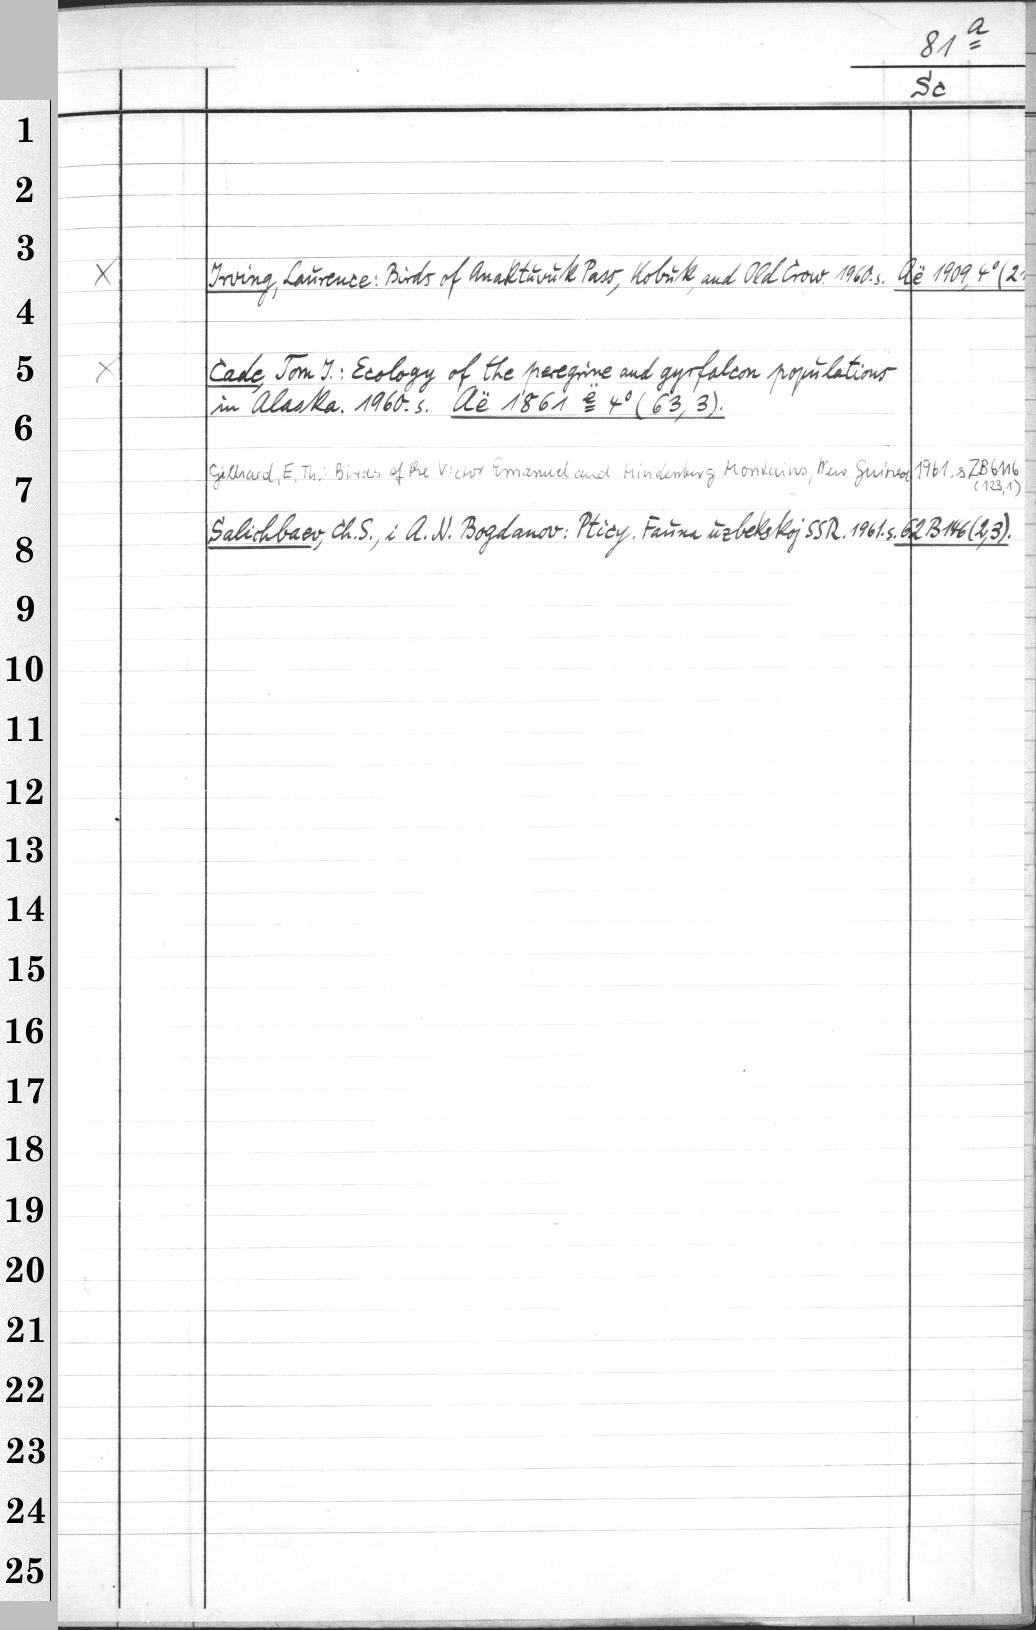 81 a
Sc
1
2
3
× Irving, Laurence: Birds of Anaktuvuk Pass, Kobuk, and Old Crow. 1960. s. Aë 1909, 4° (21
4
5
× Cade, Tom J.: Ecology of the peregrine and gyrfalcon populations
in Alaska. 1960. s. Aë 1861 e 4° (63, 3).
6
Gilliard, E. Th.: Birds of the Victor Emanuel and Hindenburg Mountains, New Guinea 1961. s ZB 6116
(123,1)
7
Salichbaev, Ch. S., i A. N. Bogdanov: Pticy. Fauna uzbekskoj SSR. 1961. s. 62 B 146 (2,3).
8
9
10
11
12
13
14
15
16
17
18
19
20
21
22
23
24
25